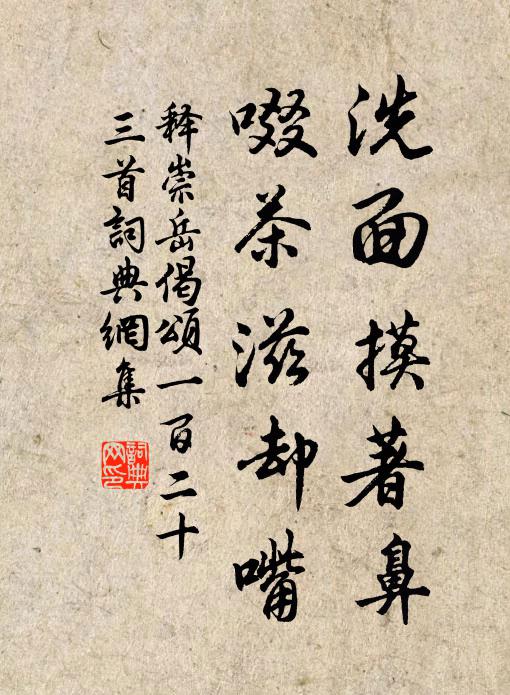 洗面摸著鼻
啜茶滋却嘴
释崇岳偈頌一百二十
三首詞典網集
詞典网印